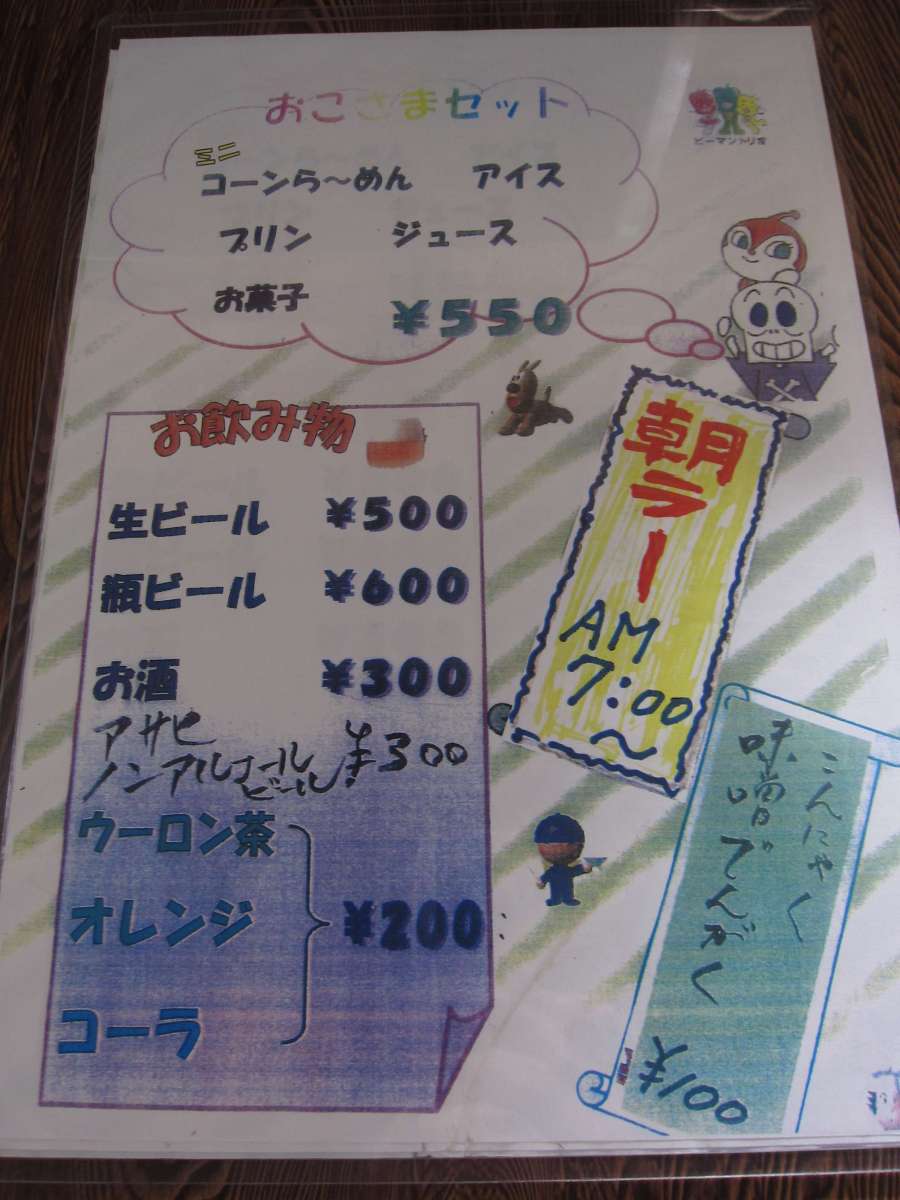 おこさまセット
ピーマントリオ
ミニ
コーンら～めん アイス
プリン ジュース
お菓子 ¥550
お飲み物
生ビール ¥500
瓶ビール ¥600
お酒 ¥300
アサヒ
ノンアルコール
ビール ¥300
ウーロン茶
オレンジ ¥200
コーラ
朝ラー
AM
7:00
～
こんにゃく
味噌でんがく
¥100